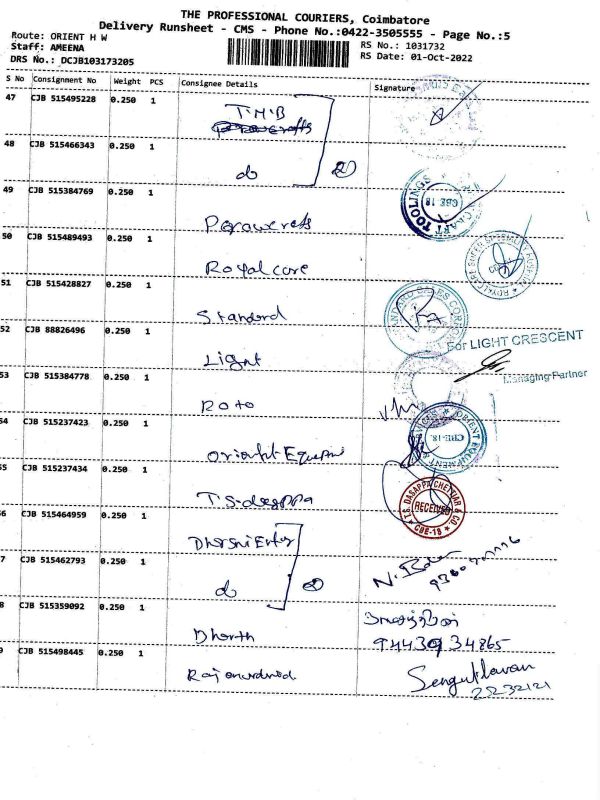 THE PROFESSIONAL COURIERS, Coimbatore
Delivery Runsheet - CMS - Phone No.:0422-3505555 - Page No.:5
Route: ORIENT H W
Staff: AMEENA
DRS No.: DCJB103173205
RS No.: 1031732
RS Date: 01-Oct-2022
S No Consignment No Weight PCS Consignee Details Signature
47 CJB 515495228 0.250 1 T.M.B
48 CJB 515466343 0.250 1 do 2
49 CJB 515384769 0.250 1
CRAFT TOOLINGS CBE 18
50 CJB 515489493 0.250 1 Royal care
51 CJB 515428827 0.250 1 Standard
52 CJB 88826496 0.250 1 Light
For LIGHT CRESCENT
Managing Partner
53 CJB 515384778 0.250 1 Roto
54 CJB 515237423 0.250 1
ORIENT EQUIPMENT CBE-18.
55 CJB 515237434 0.250 1 T.S.dasappa
T.S. DASAPPA CHETTIAR & CO RECEIVED CBE-18
56 CJB 515464959 0.250 1
7 CJB 515462793 0.250 1 do 2
8 CJB 515359092 0.250 1
94439 34865
9 CJB 515498445 0.250 1
Senguttuvan
2232121